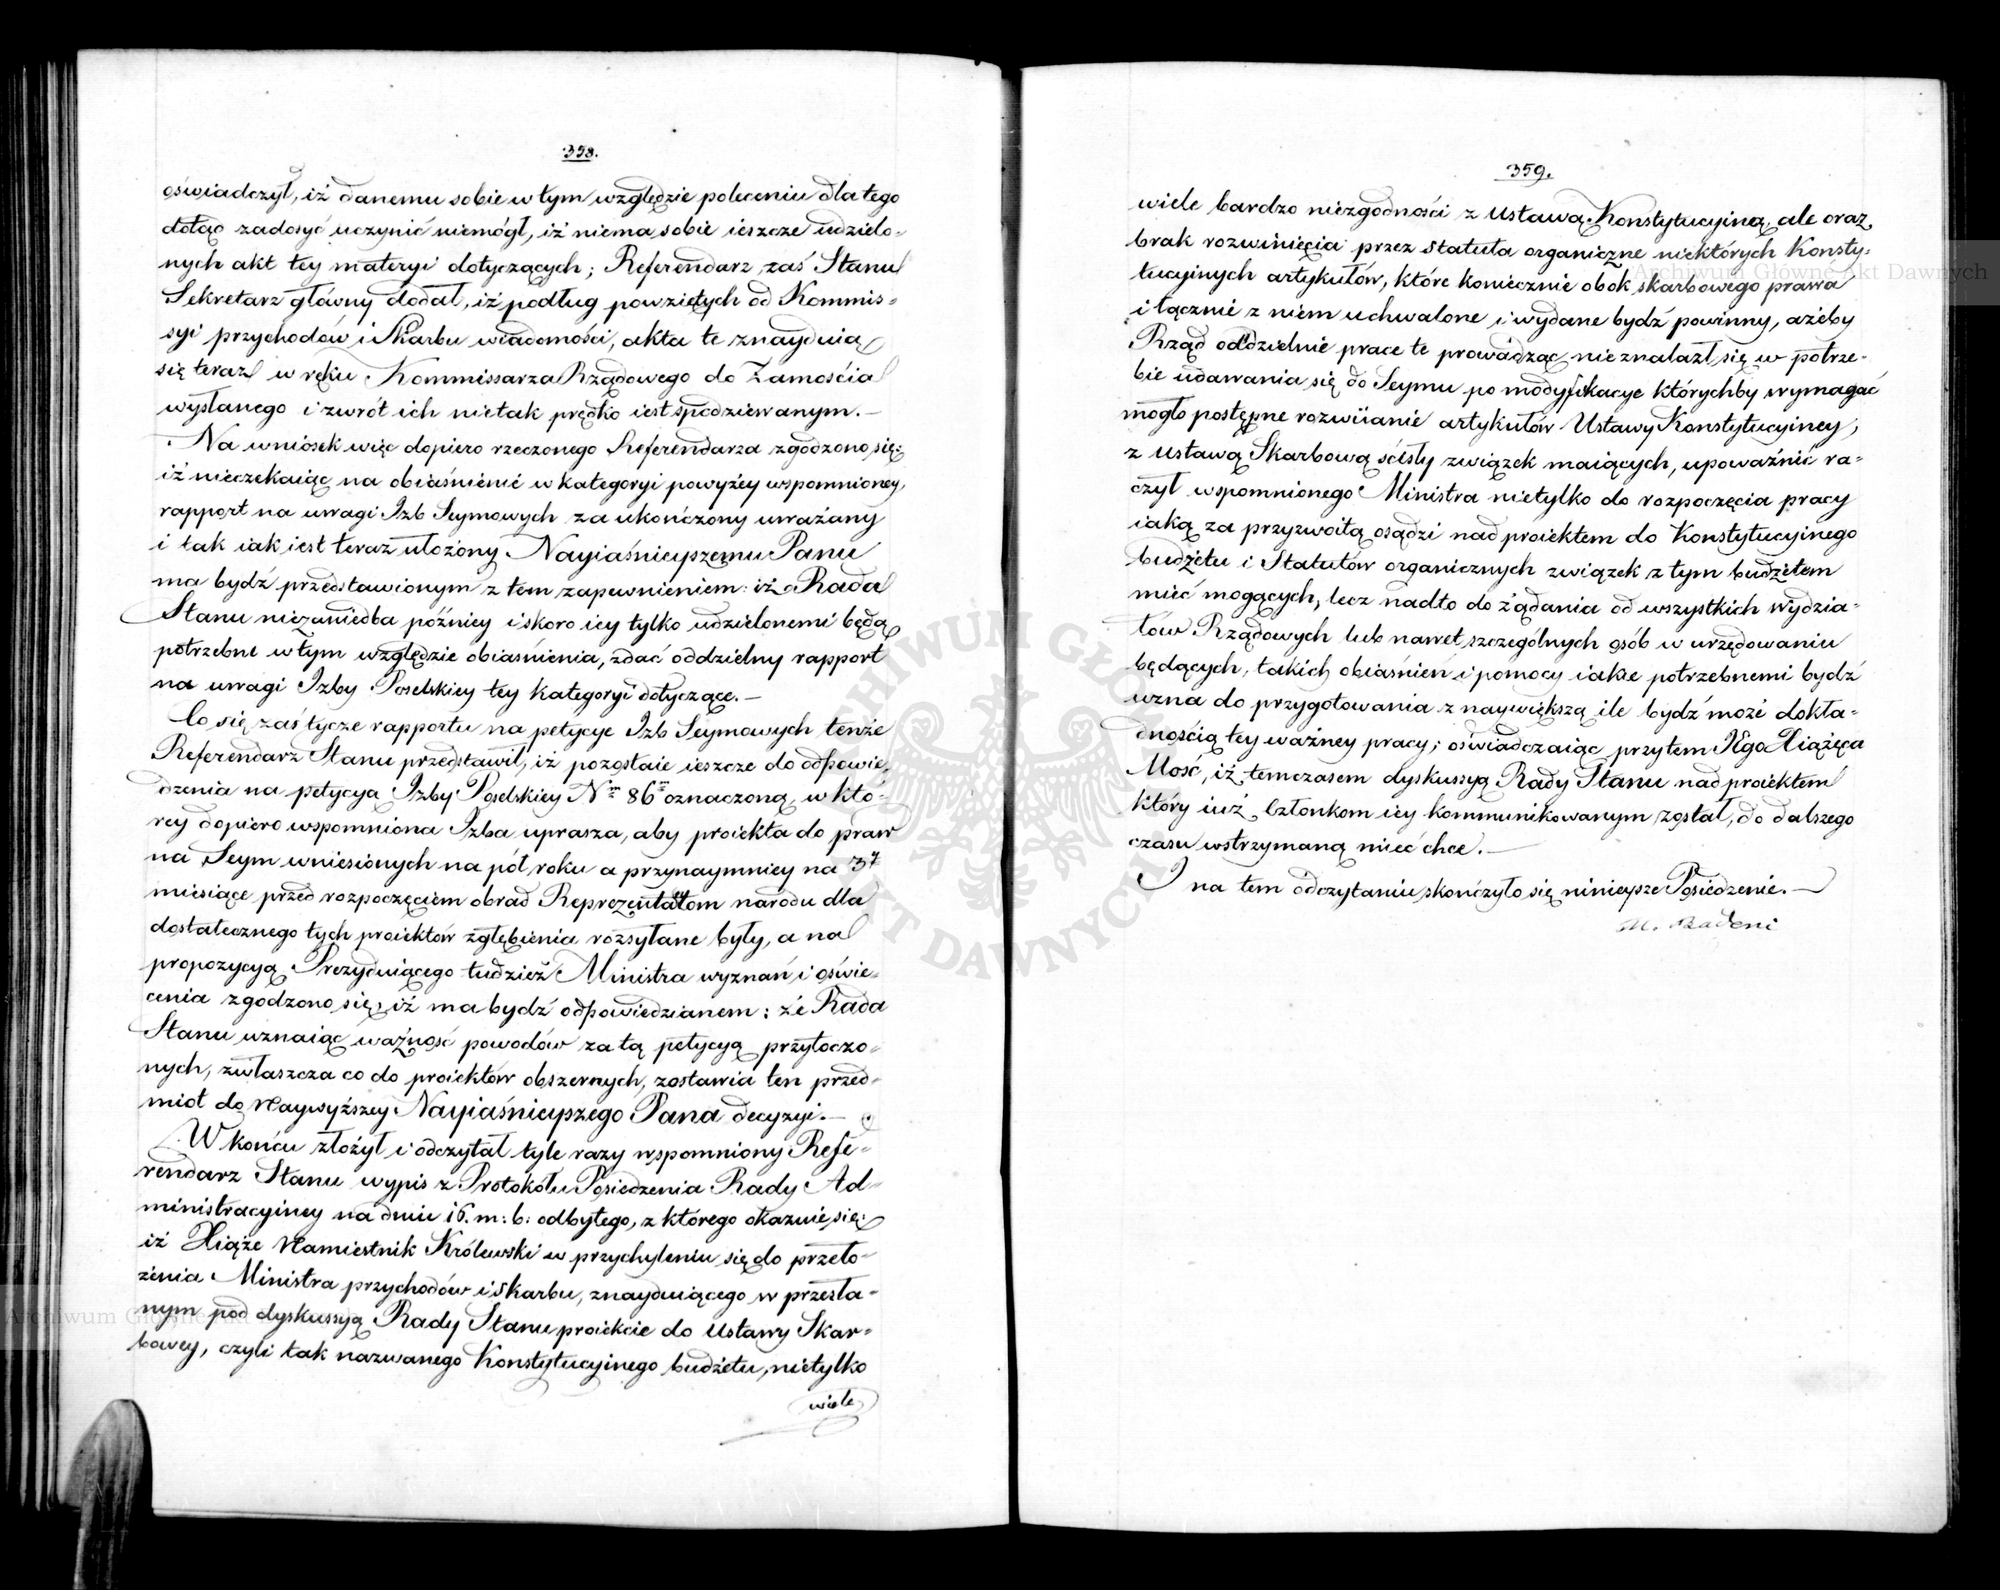 358.
oświadczył, iż danemu sobie w tym względzie poleceniu dla tego
dotąd zadosyć uczynić niemógł, iż niema sobie ieszcze udzielo-
nych akt tey materyi dotyczących; Referendarz zaś Stanu
Sekretarz główny dodał, iż podług powziętych od Kommis-
syi przychodów i Skarbu wiadomości, akta te znayduią
się teraz w ręku Kommissarza Rządowego do Zamościa
wysłanego i zwrót ich nietak prędko iest spodziewanym.—
Na wniosek więc dopiero rzeczonego Referendarza zgodzono się:
iż nieczekaiąc na obiaśnienie w kategoryi powyżey wspomnioney,
rapport na uwagi Izb Seymowych za ukończony uważany
i tak iak iest teraz ułożony Nayiaśnieyszemu Panu
ma bydź przedstawionym z tem zapewnieniem: iż Rada
Stanu niezaniedba późniey i skoro iey tylko udzielonemi będą
potrzebne w tym względzie obiaśnienia, zdać oddzielny rapport
na uwagi Izby Poselskiey tey kategoryi dotyczące.—
Co się zaś tycze rapportu na petycye Izb Seymowych tenże
Referendarz Stanu przedstawił, iż pozostaie ieszcze do odpowie-
dzenia na petycyą Izby Poselskiey Nrm 86m oznaczoną, w któ-
rey dopiero wspomniona Izba uprasza, aby proiekta do praw
na Seym wniesionych na pół roku a przynaymniey na 3y
miesiące przed rozpoczęciem obrad Reprezentatom narodu dla
dostatecznego tych proiektów zgłębienia rozsyłane były, a na
propozycyą Prezyduiącego tudzież Ministra wyznań i oświe-
cenia zgodzono się, iż ma bydź odpowiedzianem: że Rada
Stanu uznaiąc ważność powodów za tą petycyą przytoczo-
nych, zwłaszcza co do proiektów obszernych, zostawia ten przed-
miot do Naywyższey Nayiaśnieyszego Pana decyzyi.—
W końcu złożył i odczytał tyle razy wspomniony Refe-
rendarz Stanu wypis z Protokółu Posiedzenia Rady Ad-
ministracyiney na dniu 16. m: b: odbytego, z którego okazuie się:
iż Xiąże Namiestnik Królewski w przychyleniu się do przeło-
żenia Ministra przychodów i skarbu, znayduiącego w przesła-
nym pod dyskussyą Rady Stanu proiekcie do Ustawy Skar-
bowey, czyli tak nazwanego Konstytucyinego budżetu, nietylko
wiele
359.
wiele bardzo niezgodności z Ustawą Konstytucyiną, ale oraz
brak rozwinięcia przez Statuta organiczne niektórych Konsty-
tucyinych artykułów, które koniecznie obok skarbowego prawa
i łącznie z niem uchwalone i wydane bydź powinny, ażeby
Rząd oddzielnie prace te prowadząc nieznalazł się w potrze-
bie udawania się do Seymu po modyfikacye którychby wymagać
mogło postępne rozwiianie artykułów Ustawy Konstytucyiney,
z Ustawą Skarbową ścisły związek maiących, upoważnić ra-
czył wspomnionego Ministra nietylko do rozpoczęcia pracy
iaką za przyzwoitą osądzi nad proiektem do Konstytucyinego
budżetu i Statutów organicznych związek z tym budżetem
mieć mogących, lecz nadto do żądania od wszystkich Wydzia-
łów Rządowych lub nawet szczególnych osób w urzędowaniu
będących, takich obiaśnień i pomocy iakie potrzebnemi bydź
uzna do przygotowania z naywiększą ile bydź może dokła-
dnością tey ważney pracy; oświadczaiąc przytem JEgo Xiążęca
Mość, iż temczasem dyskussyą Rady Stanu nad proiektem
który iuż Członkom iey kommunikowanym został, do dalszego
czasu wstrzymaną mieć chce.—
I na tem odczytaniu skończyło się ninieysze Posiedzenie.—
M. Badeni
Archiwum Główne Akt Dawnych
Archiwum Główne Akt Dawnych
ARCHIWUM GŁÓWNE AKT DAWNYCH